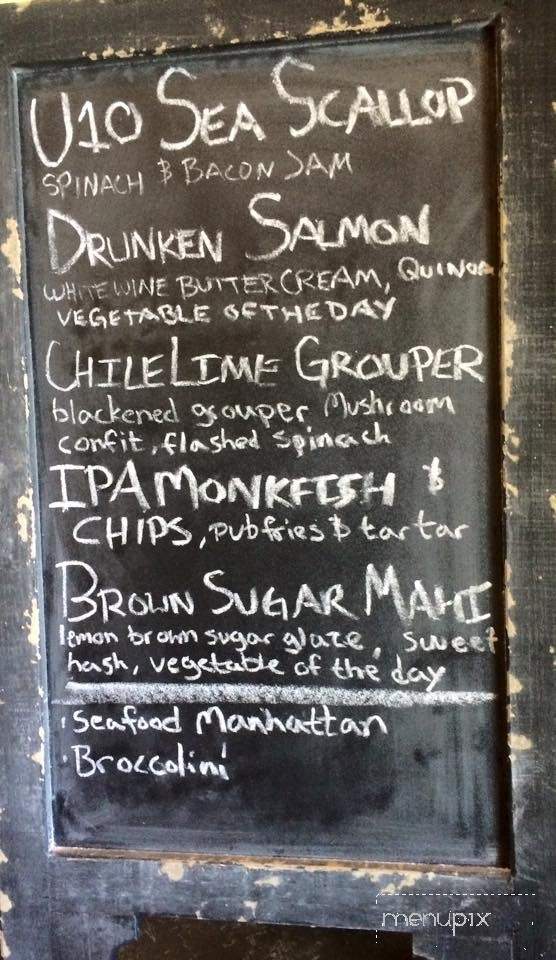 U10 SEA SCALLOP
SPINACH & BACON JAM
DRUNKEN SALMON
WHITE WINE BUTTER CREAM, QUINOA
VEGETABLE OF THE DAY
CHILE LIME GROUPER
blackened grouper Mushroom
confit, flashed spinach
IPA MONKFISH &
CHIPS, pub fries & tartar
BROWN SUGAR MAHI
lemon brown sugar glaze, sweet
hash, vegetable of the day
· Seafood Manhattan
· Broccolini
menupix